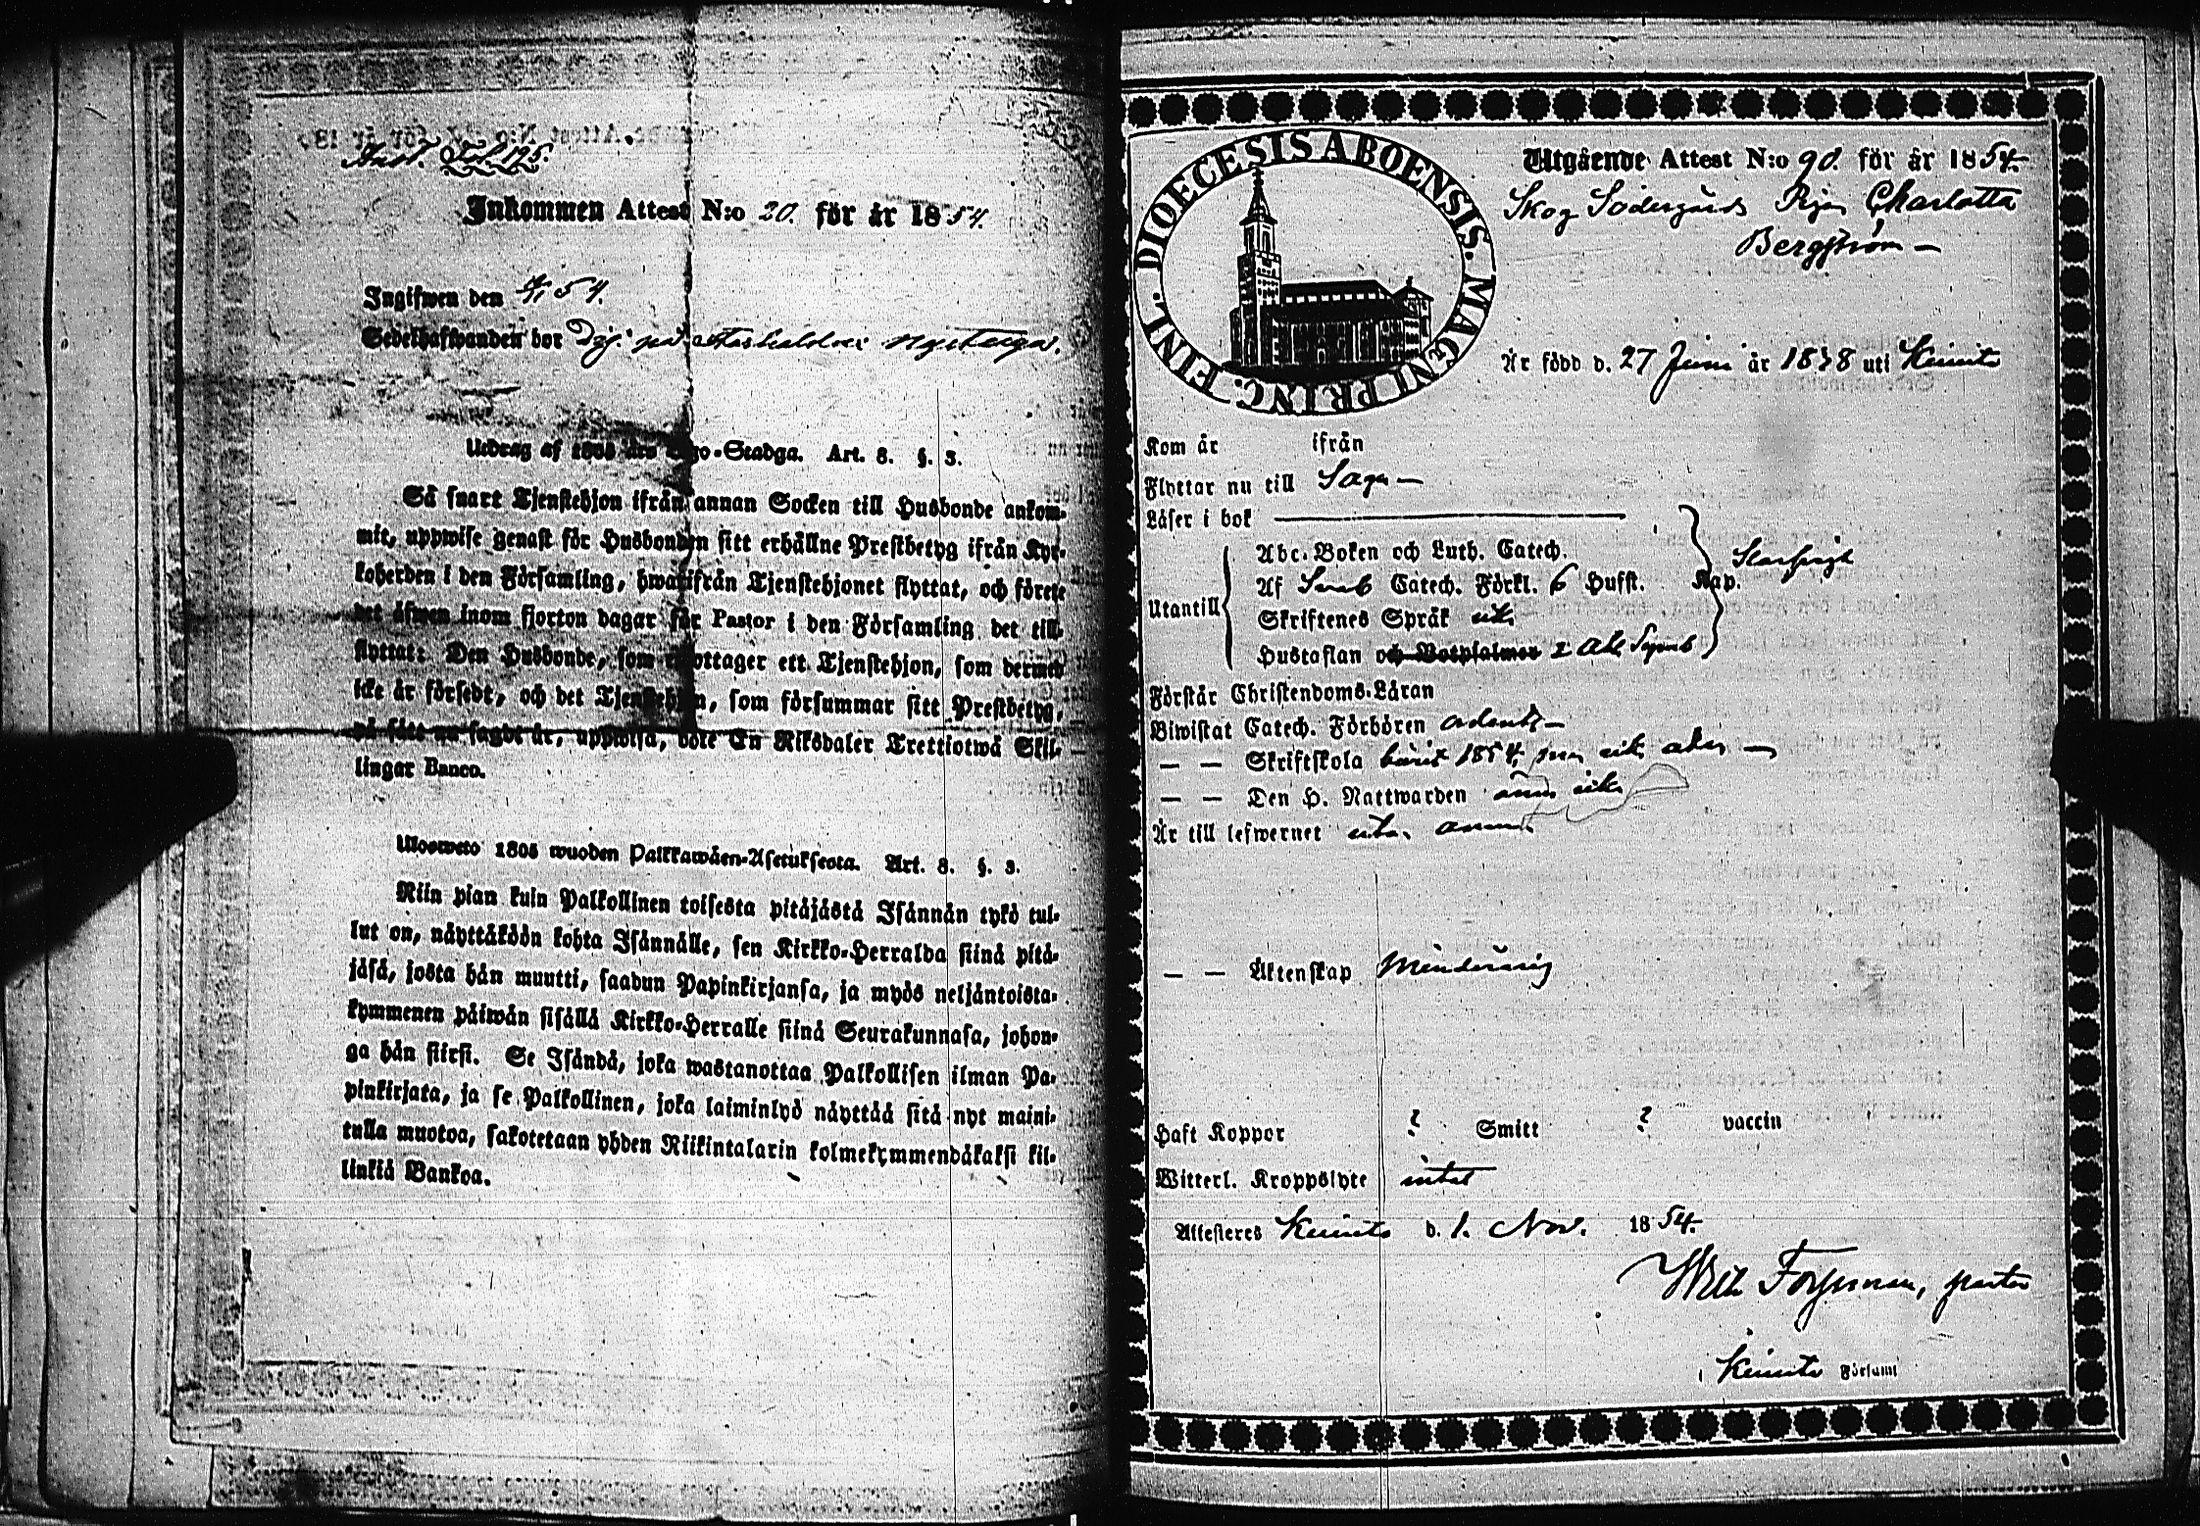 Fol. 195.
Inkommen Attest N:o 20. för år 1854.
Ingifwen den 54.
Sedelhafwanden bor på
Utdrag af 1805 års Lego-Stadga. Art. 8. §. 3.
Så snart Tjenstehjon ifrån annan Socken till Husbonde ankom-
mit, uppwise genast för Husbonden sitt erhållne Prestbetyg ifrån Kyr-
koherden i den Församling, hwarifrån Tjenstehjonet flyttat, och förete
det äfwen inom fjorton dagar för Pastor i den Församling det till-
flyttat: Den Husbonde, som emottager ett Tjenstehjon, som dermed
icke är försedt, och det Tjenstehjon, som försummar sitt Prestbetyg,
på sätt nu sagdt är, uppwisa, böte En Riksdaler Trettiotwå Skil-
lingar Banco.
Ulosweto 1805 wuoden Palkkawäen-Asetuksesta. Art. 8. §. 3.
Niin pian kuin Palkollinen toisesta pitäjästä Isännän tykö tul-
lut on, näyttäköön kohta Isännälle, sen Kirkko-Herralda siinä pitä-
jäsä, josta hän muutti, saadun Papinkirjansa, ja myös neljäntoista-
kymmenen päiwän sisällä Kirkko-Herralle siinä Seurakunnasa, johon-
ga hän siirsi. Se Isändä, joka wastanottaa Palkollisen ilman Pa-
pinkirjata, ja se Palkollinen, joka laiminlyö näyttää sitä nyt maini-
tulla muotoa, sakotetaan yhden Riikintalarin kolmekymmendäkaksi kil-
linkiä Bankoa.
DIOECESIS ABOENSIS. MAGNI PRINC. FINL.
Utgående Attest N:o 90. för år 1854.
Skog Södergårds Pigan Charlotta
Bergström
Är född d. 27 Juni år 1838 uti Kimito
Kom år ifrån
Flyttar nu till Sagu
Läser i bok
Abc-Boken och Luth. Catech.
Utantill Af Sveb Catech. Förkl. 6 Hufst. Kap.
Skriftenes Språk
Hustaflan och Botpsalmer Symb
Förstår Christendoms-Läran
Biwistat Catech. Förhören
— — Skriftskola börjat 1854, men
— — Den H. Nattwarden ännu icke
Är till lefwernet
— — Äktenskap Minderårig
Haft Koppor ? Smitt ? vaccin
Witterl. Kroppslyte intet
Attesteras Kimito d. 1. Nov. 1854.
Wilh Forssman, pastor
i Kimito Församl